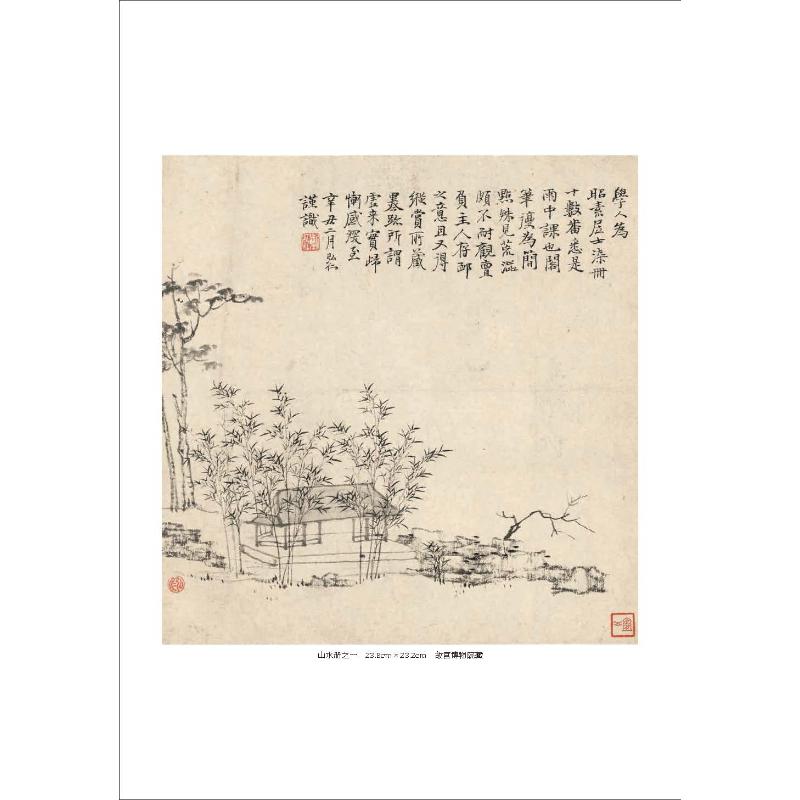 學人為
昭素居士染冊
十數番悉是
雨中課也閣
筆漫為簡
點殊見荒澀
頗不耐觀賣
負主人存邮
之意且又得
縱賞所藏
墨跡所謂
虛来實歸
慚感深至
辛丑二月弘仁
謹識
山水册之一 23.8cm×23.2cm 故宫博物院藏